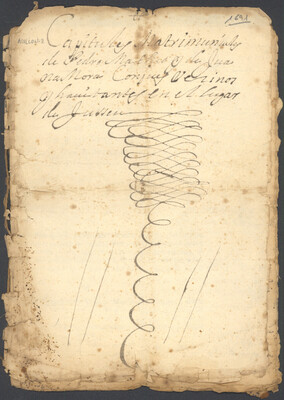 1691
Capitulos Matrimuniales
de Pedro y de
Mora Conjuges Vezinos
y hauitantes en el lugar
de Juseu